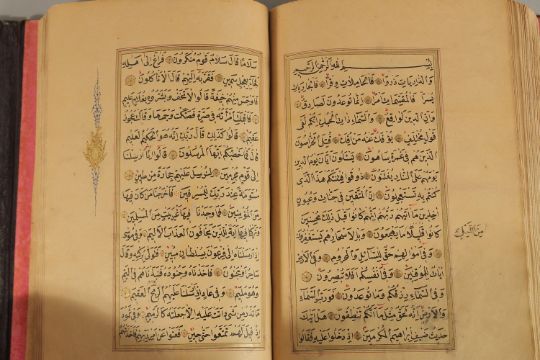 بسم الله الرحمن الرحيم
والذاريات ذروا فالحاملات وقرا فالجاريات
يسرا فالمقسمات أمرا إنما توعدون لصادق
وإن الدين لواقع والسماء ذات الحبك إنكم لفي
قول مختلف يؤفك عنه من أفك قتل الخراصون
الذين هم في غمرة ساهون يسئلون أيان يوم الدين
يوم هم على النار يفتنون ذوقوا فتنتكم هذا الذي
كنتم به تستعجلون إن المتقين في جنات وعيون
آخذين ما آتيهم ربهم إنهم كانوا قبل ذلك محسنين
كانوا قليلا ما يهجعون وبالأسحار هم يستغفرون
من الليل
وفي أموالهم حق للسائل والمحروم وفي الأرض
آيات للموقنين وفي أنفسكم أفلا تبصرون
وفي السماء رزقكم وما توعدون فورب السماء
والأرض إنه لحق مثل ما أنكم تنطقون هل أتيك
حديث ضيف إبراهيم المكرمين إذ دخلوا عليه فقالوا
سلاما قال سلام قوم منكرون فراغ إلى أهله
فجاء بعجل سمين فقربه إليهم قال ألا تأكلون
فأوجس منهم خيفة قالوا لا تخف وبشروه بغلام عليم
فأقبلت امرأته في صرة فصكت وجهها وقالت عجوز
عقيم قالوا كذلك قال ربك إنه هو الحكيم العليم
قال فما خطبكم أيها المرسلون قالوا إنا أرسلنا
إلى قوم مجرمين لنرسل عليهم حجارة من طين
مسومة عند ربك للمسرفين فأخرجنا من كان فيها
من المؤمنين فما وجدنا فيها غير بيت من المسلمين
وتركنا فيها آية للذين يخافون العذاب الأليم وفي موسى
إذ أرسلناه إلى فرعون بسلطان مبين فتولى بركنه وقال
ساحر أو مجنون فأخذناه وجنوده فنبذناهم في اليم
وهو مليم وفي عاد إذ أرسلنا عليهم الريح العقيم
ما تذر من شيء أتت عليه إلا جعلته كالرميم وفي ثمود
إذ قيل لهم تمتعوا حتى حين فعتوا عن أمر ربهم